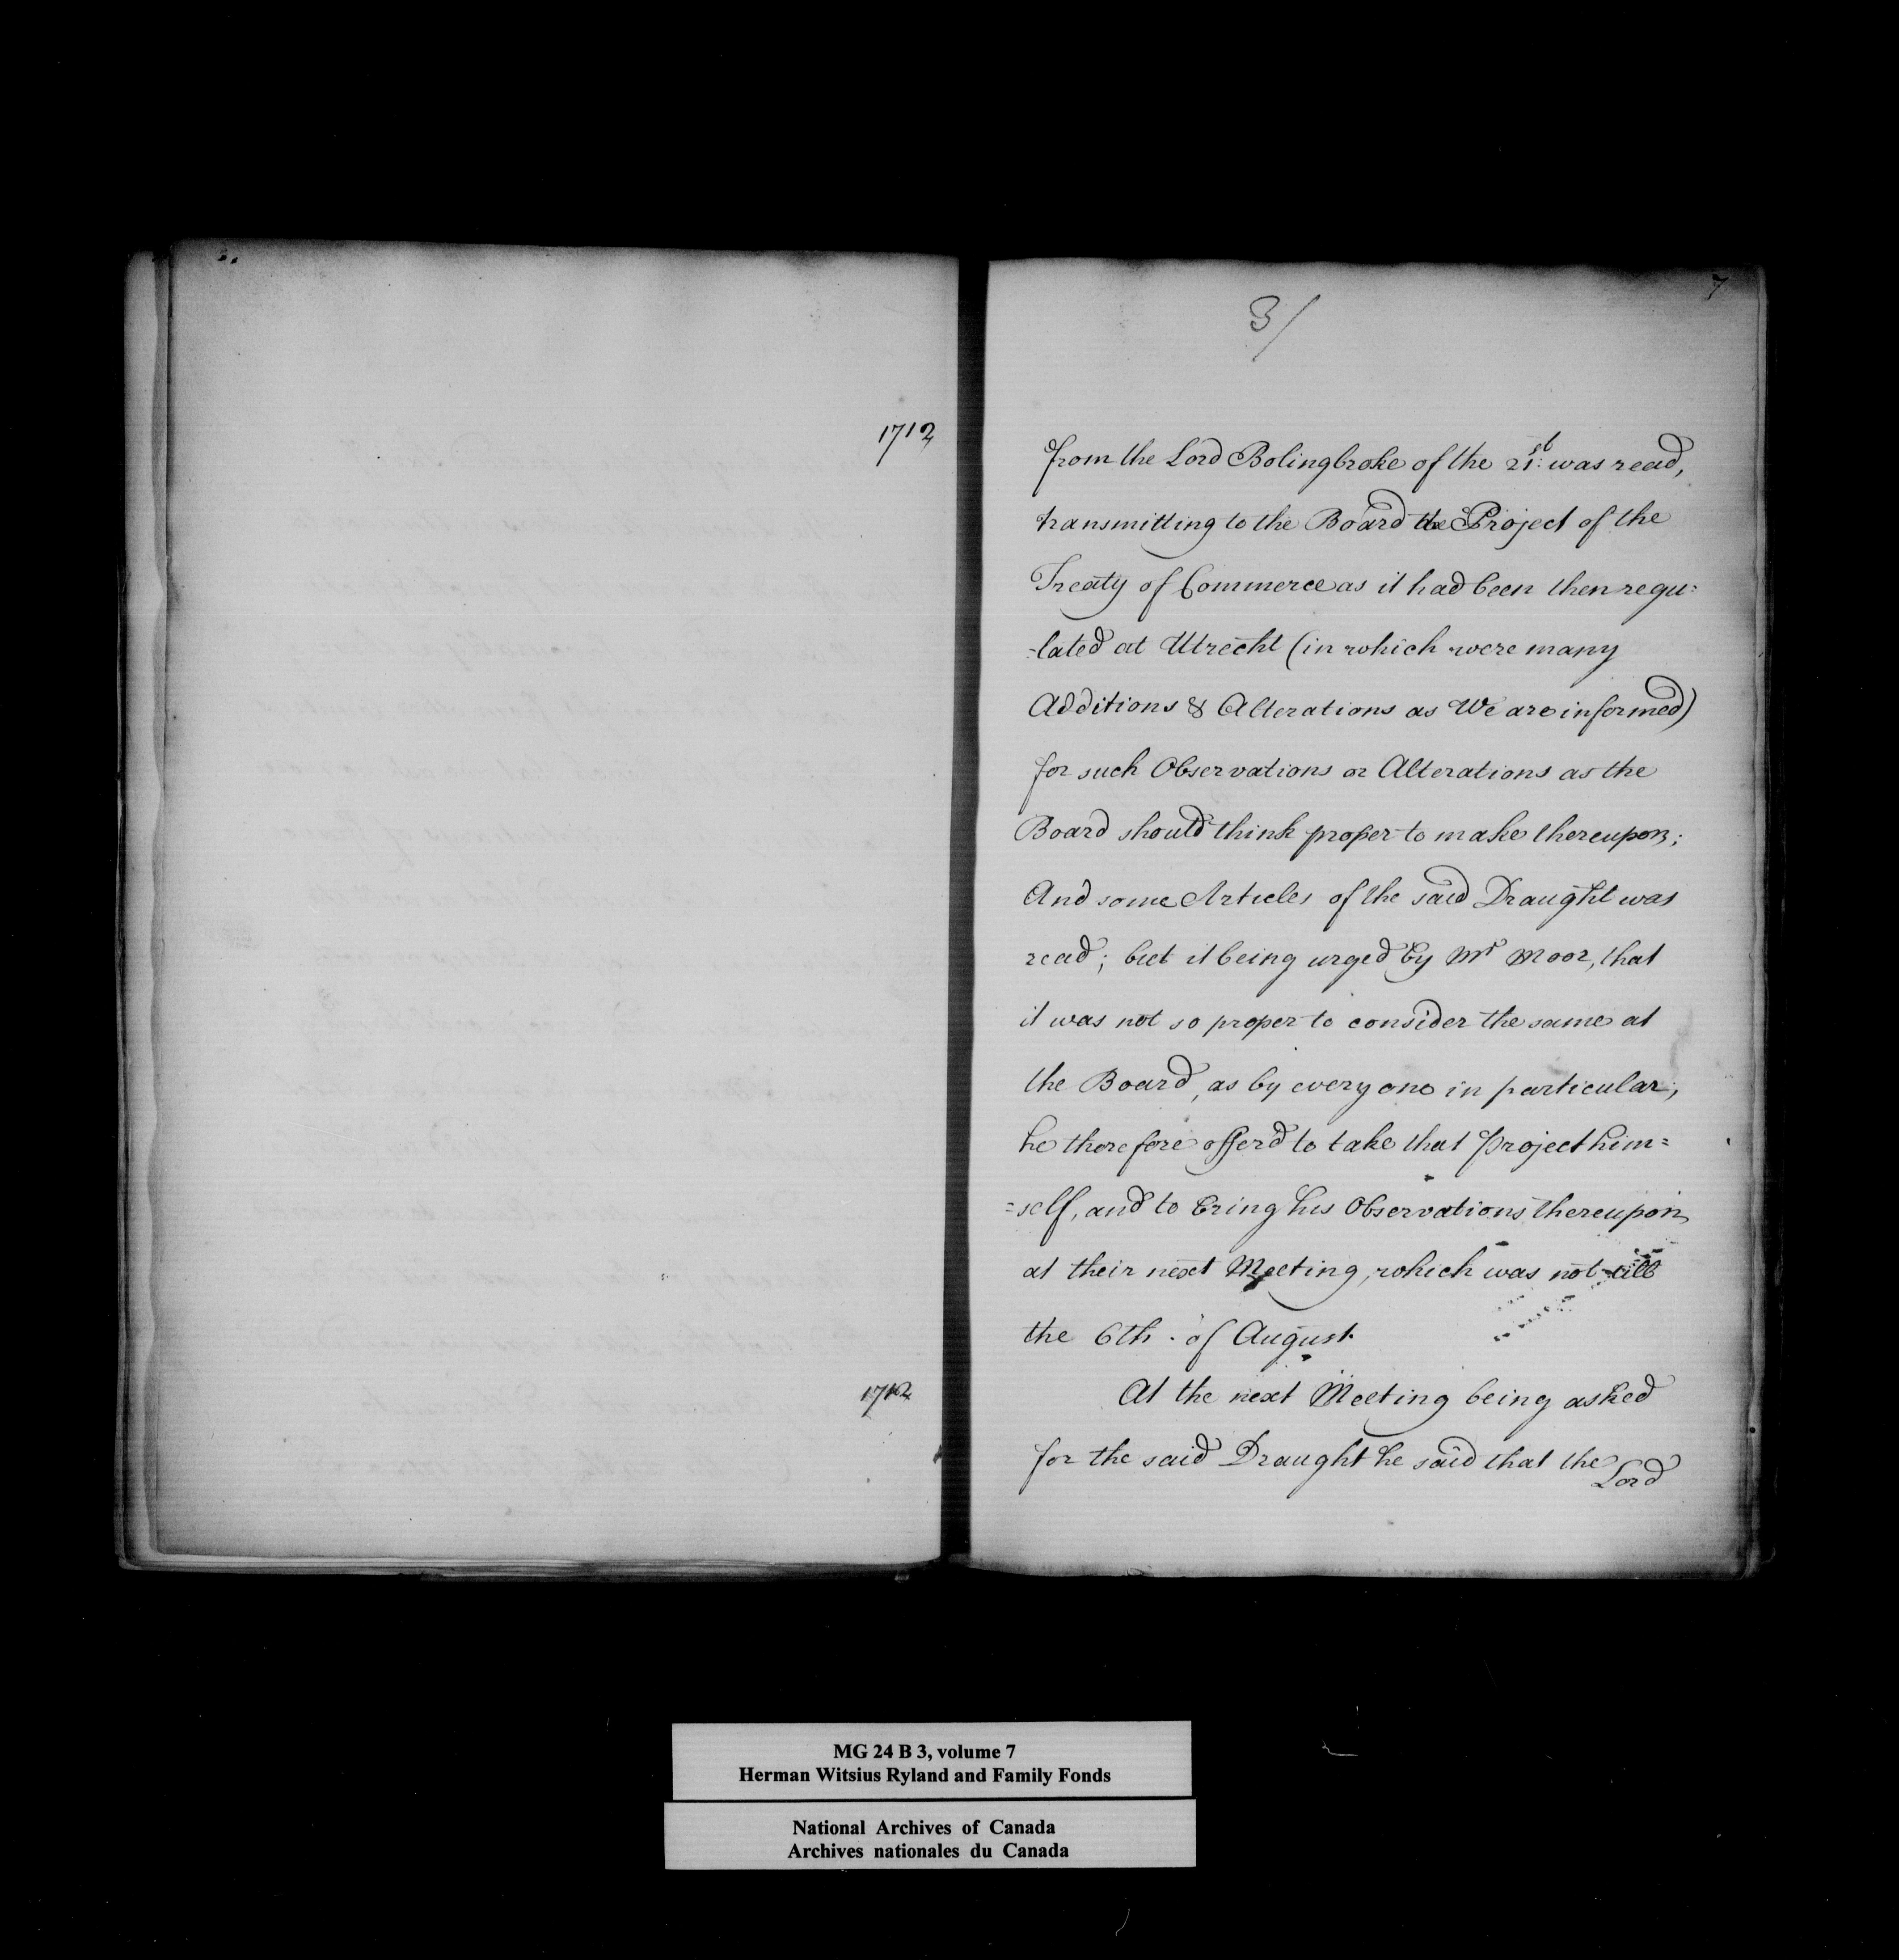 1712
1712
7
3/
from the Lord Bolingbroke of the 21st was read,
transmitting to the Board the Project of the
Treaty of Commerce as it had been then regu=
=lated at Utrecht (in which were many
Additions & Alterations as We are informed)
for such Observations or Alterations as the
Board should think proper to make thereupon;
And some Articles of the said Draught was
read; but it being urged by Mr Moor, that
it was not so proper to consider the same at
the Board, as by every one in particular;
he therefore offerd to take that Project him=
=self, and to bring his Observations thereupon
at their next Meeting, which was not till
the 6th. of August.
At the next Meeting being asked
for the said Draught he said that the
Lord
MG 24 B 3, volume 7
Herman Witsius Ryland and Family Fonds
National Archives of Canada
Archives nationales du Canada